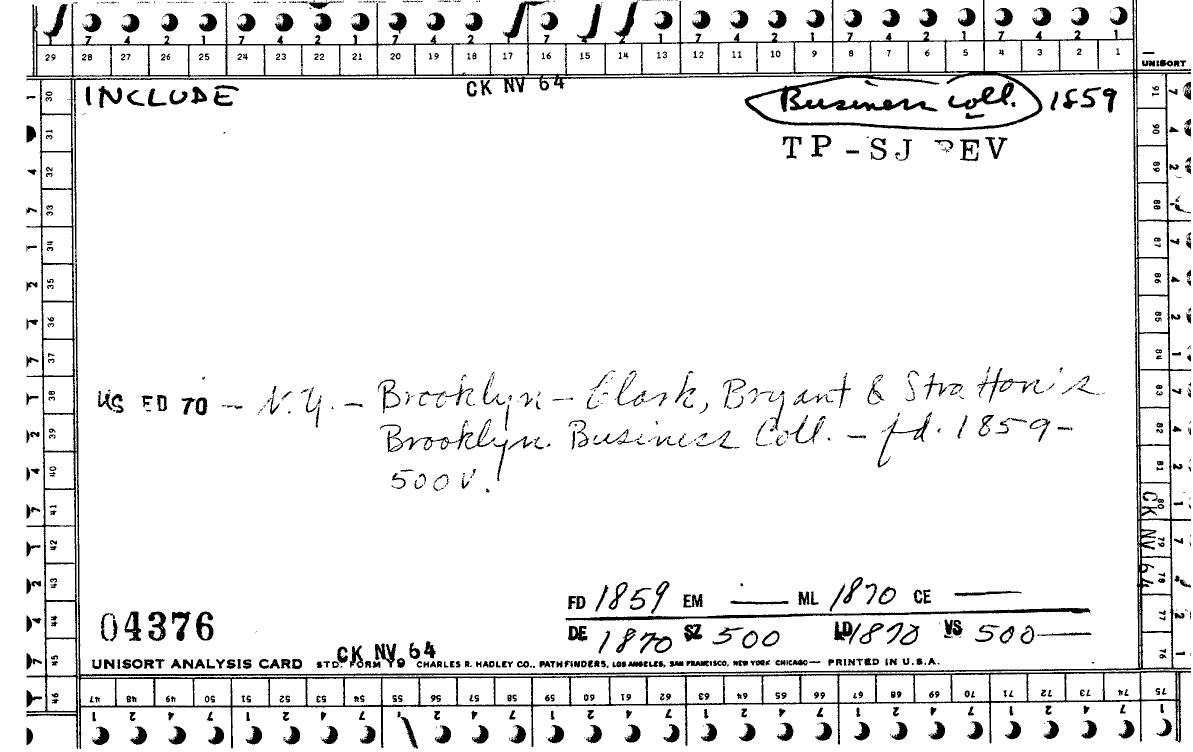 7 4 2 1 7 4 2 1 7 4 2 1 7 4 2 1 7 4 2 1 7 4 2 1 7 4 2 1
29 28 27 26 25 24 23 22 21 20 19 18 17 16 15 14 13 12 11 10 9 8 7 6 5 4 3 2 1
UNISORT
CK NV 64
INCLUDE
Business Coll. 1859
TP-SJ REV
US ED 70 - N.Y. - Brooklyn - Clark, Bryant & Stratton's
Brooklyn Business Coll. - fd. 1859-
500 V.
FD 1859 EM — ML 1870 CE —
04376
DE 1870 SZ 500 LD 1870 VS 500—
CK NV 64
UNISORT ANALYSIS CARD STD. FORM Y9 CHARLES R. HADLEY CO., PATHFINDERS, LOS ANGELES, SAN FRANCISCO, NEW YORK CHICAGO— PRINTED IN U.S.A.
30 31 32 33 34 35 36 37 38 39 40 41 42 43 44 45 46
47 48 49 50 51 52 53 54 55 56 57 58 59 60 61 62 63 64 65 66 67 68 69 70 71 72 73 74 75
91 90 89 88 87 86 85 84 83 82 81 80 79 78 77 76
CK NV 64